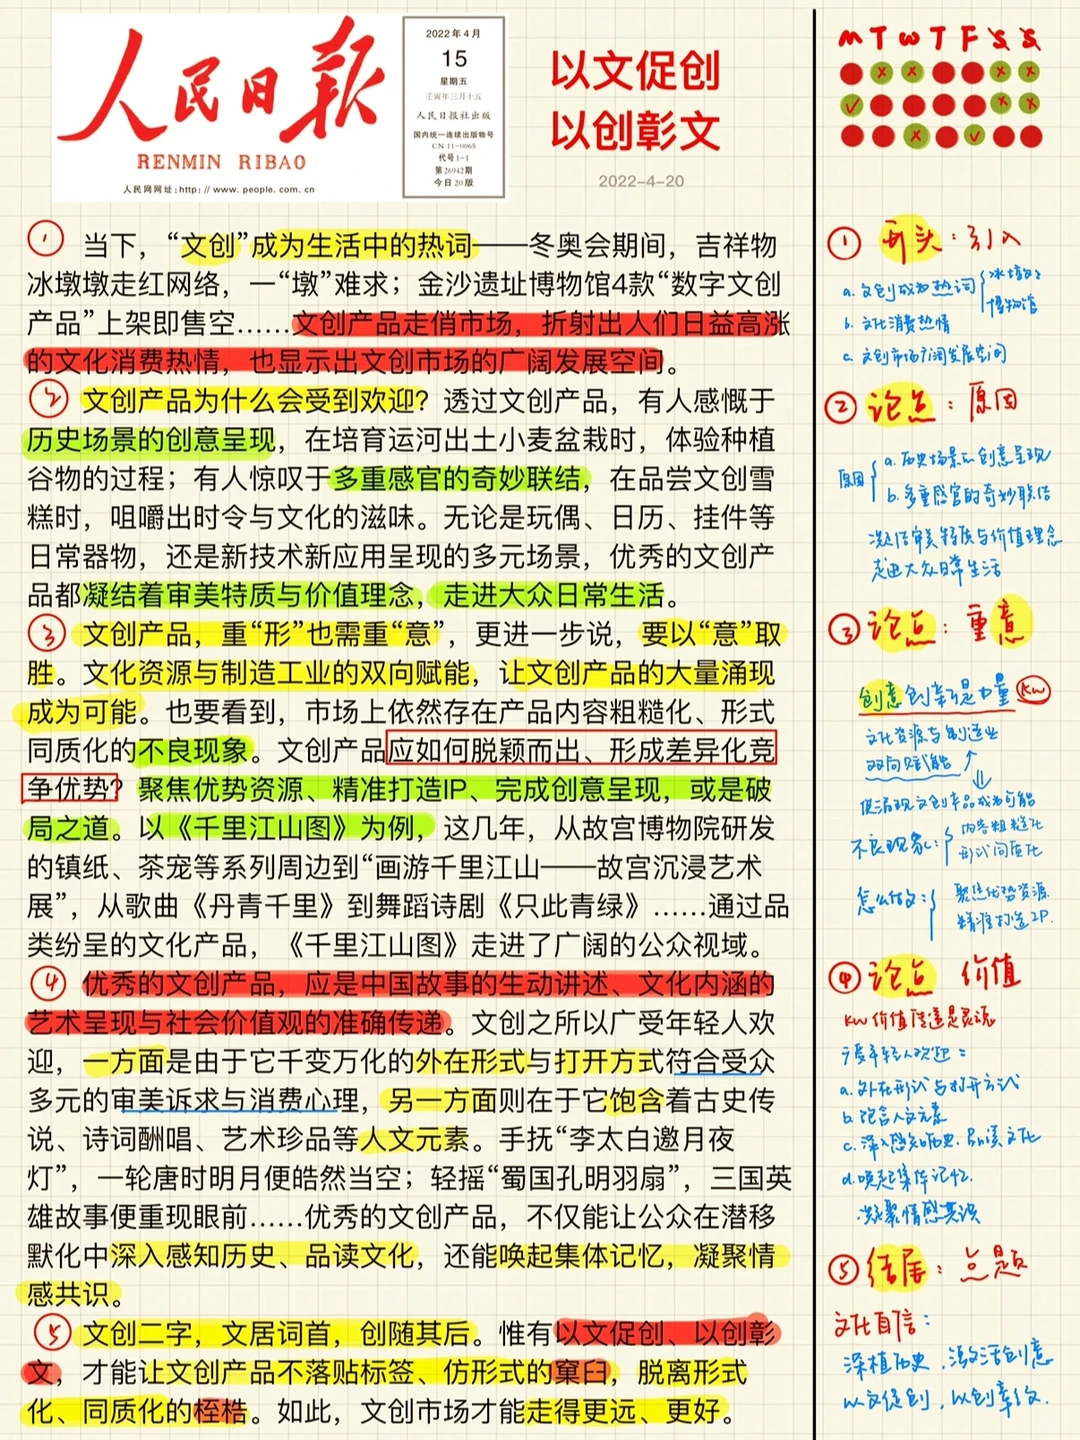 人民日报
RENMIN RIBAO
人民网网址:http://www.people.com.cn
2022年4月
15
星期五
壬寅年三月十五
人民日报社出版
国内统一连续出版物号
CN 11-0065
代号1-1
第26942期
今日20版
以文促创
以创彰文
2022-4-20
① 当下，“文创”成为生活中的热词——冬奥会期间，吉祥物
冰墩墩走红网络，一“墩”难求；金沙遗址博物馆4款“数字文创
产品”上架即售空……文创产品走俏市场，折射出人们日益高涨
的文化消费热情，也显示出文创市场的广阔发展空间。
② 文创产品为什么会受到欢迎？透过文创产品，有人感慨于
历史场景的创意呈现，在培育运河出土小麦盆栽时，体验种植
谷物的过程；有人惊叹于多重感官的奇妙联结，在品尝文创雪
糕时，咀嚼出时令与文化的滋味。无论是玩偶、日历、挂件等
日常器物，还是新技术新应用呈现的多元场景，优秀的文创产
品都凝结着审美特质与价值理念，走进大众日常生活。
③ 文创产品，重“形”也需重“意”，更进一步说，要以“意”取
胜。文化资源与制造工业的双向赋能，让文创产品的大量涌现
成为可能。也要看到，市场上依然存在产品内容粗糙化、形式
同质化的不良现象。文创产品应如何脱颖而出、形成差异化竞
争优势？聚焦优势资源、精准打造IP、完成创意呈现，或是破
局之道。以《千里江山图》为例，这几年，从故宫博物院研发
的镇纸、茶宠等系列周边到“画游千里江山——故宫沉浸艺术
展”，从歌曲《丹青千里》到舞蹈诗剧《只此青绿》……通过品
类纷呈的文化产品，《千里江山图》走进了广阔的公众视域。
④ 优秀的文创产品，应是中国故事的生动讲述、文化内涵的
艺术呈现与社会价值观的准确传递。文创之所以广受年轻人欢
迎，一方面是由于它千变万化的外在形式与打开方式符合受众
多元的审美诉求与消费心理，另一方面则在于它饱含着古史传
说、诗词酬唱、艺术珍品等人文元素。手抚“李太白邀月夜
灯”，一轮唐时明月便皓然当空；轻摇“蜀国孔明羽扇”，三国英
雄故事便重现眼前……优秀的文创产品，不仅能让公众在潜移
默化中深入感知历史、品读文化，还能唤起集体记忆，凝聚情
感共识。
⑤ 文创二字，文居词首，创随其后。惟有以文促创、以创彰
文，才能让文创产品不落贴标签、仿形式的窠臼，脱离形式
化、同质化的桎梏。如此，文创市场才能走得更远、更好。
M T W T F S S
① 开头：引入
a. 文创成为热词
冰墩墩
博物馆
b. 文化消费热情
c. 文创市场广阔发展空间
② 论点：原因
原因
a. 历史场景的创意呈现
b. 多重感官的奇妙联结
凝结审美特质与价值理念
走进大众日常生活
③ 论点：重意
创意创新是力量 KW
文化资源与制造业
双向赋能
使涌现文创产品成为可能
不良现象：
内容粗糙化
形式同质化
怎么做文：
聚焦优势资源
精准打造IP.
④ 论点 价值
KW 价值传递是灵魂
广受年轻人欢迎：
a. 外在形式与打开方式
b. 饱含人文元素
c. 深入感知历史.品读文化
d. 唤起集体记忆.
凝聚情感共识
⑤ 结尾：点题
文化自信：
深植历史，激活创意
以文促创，以创彰文.